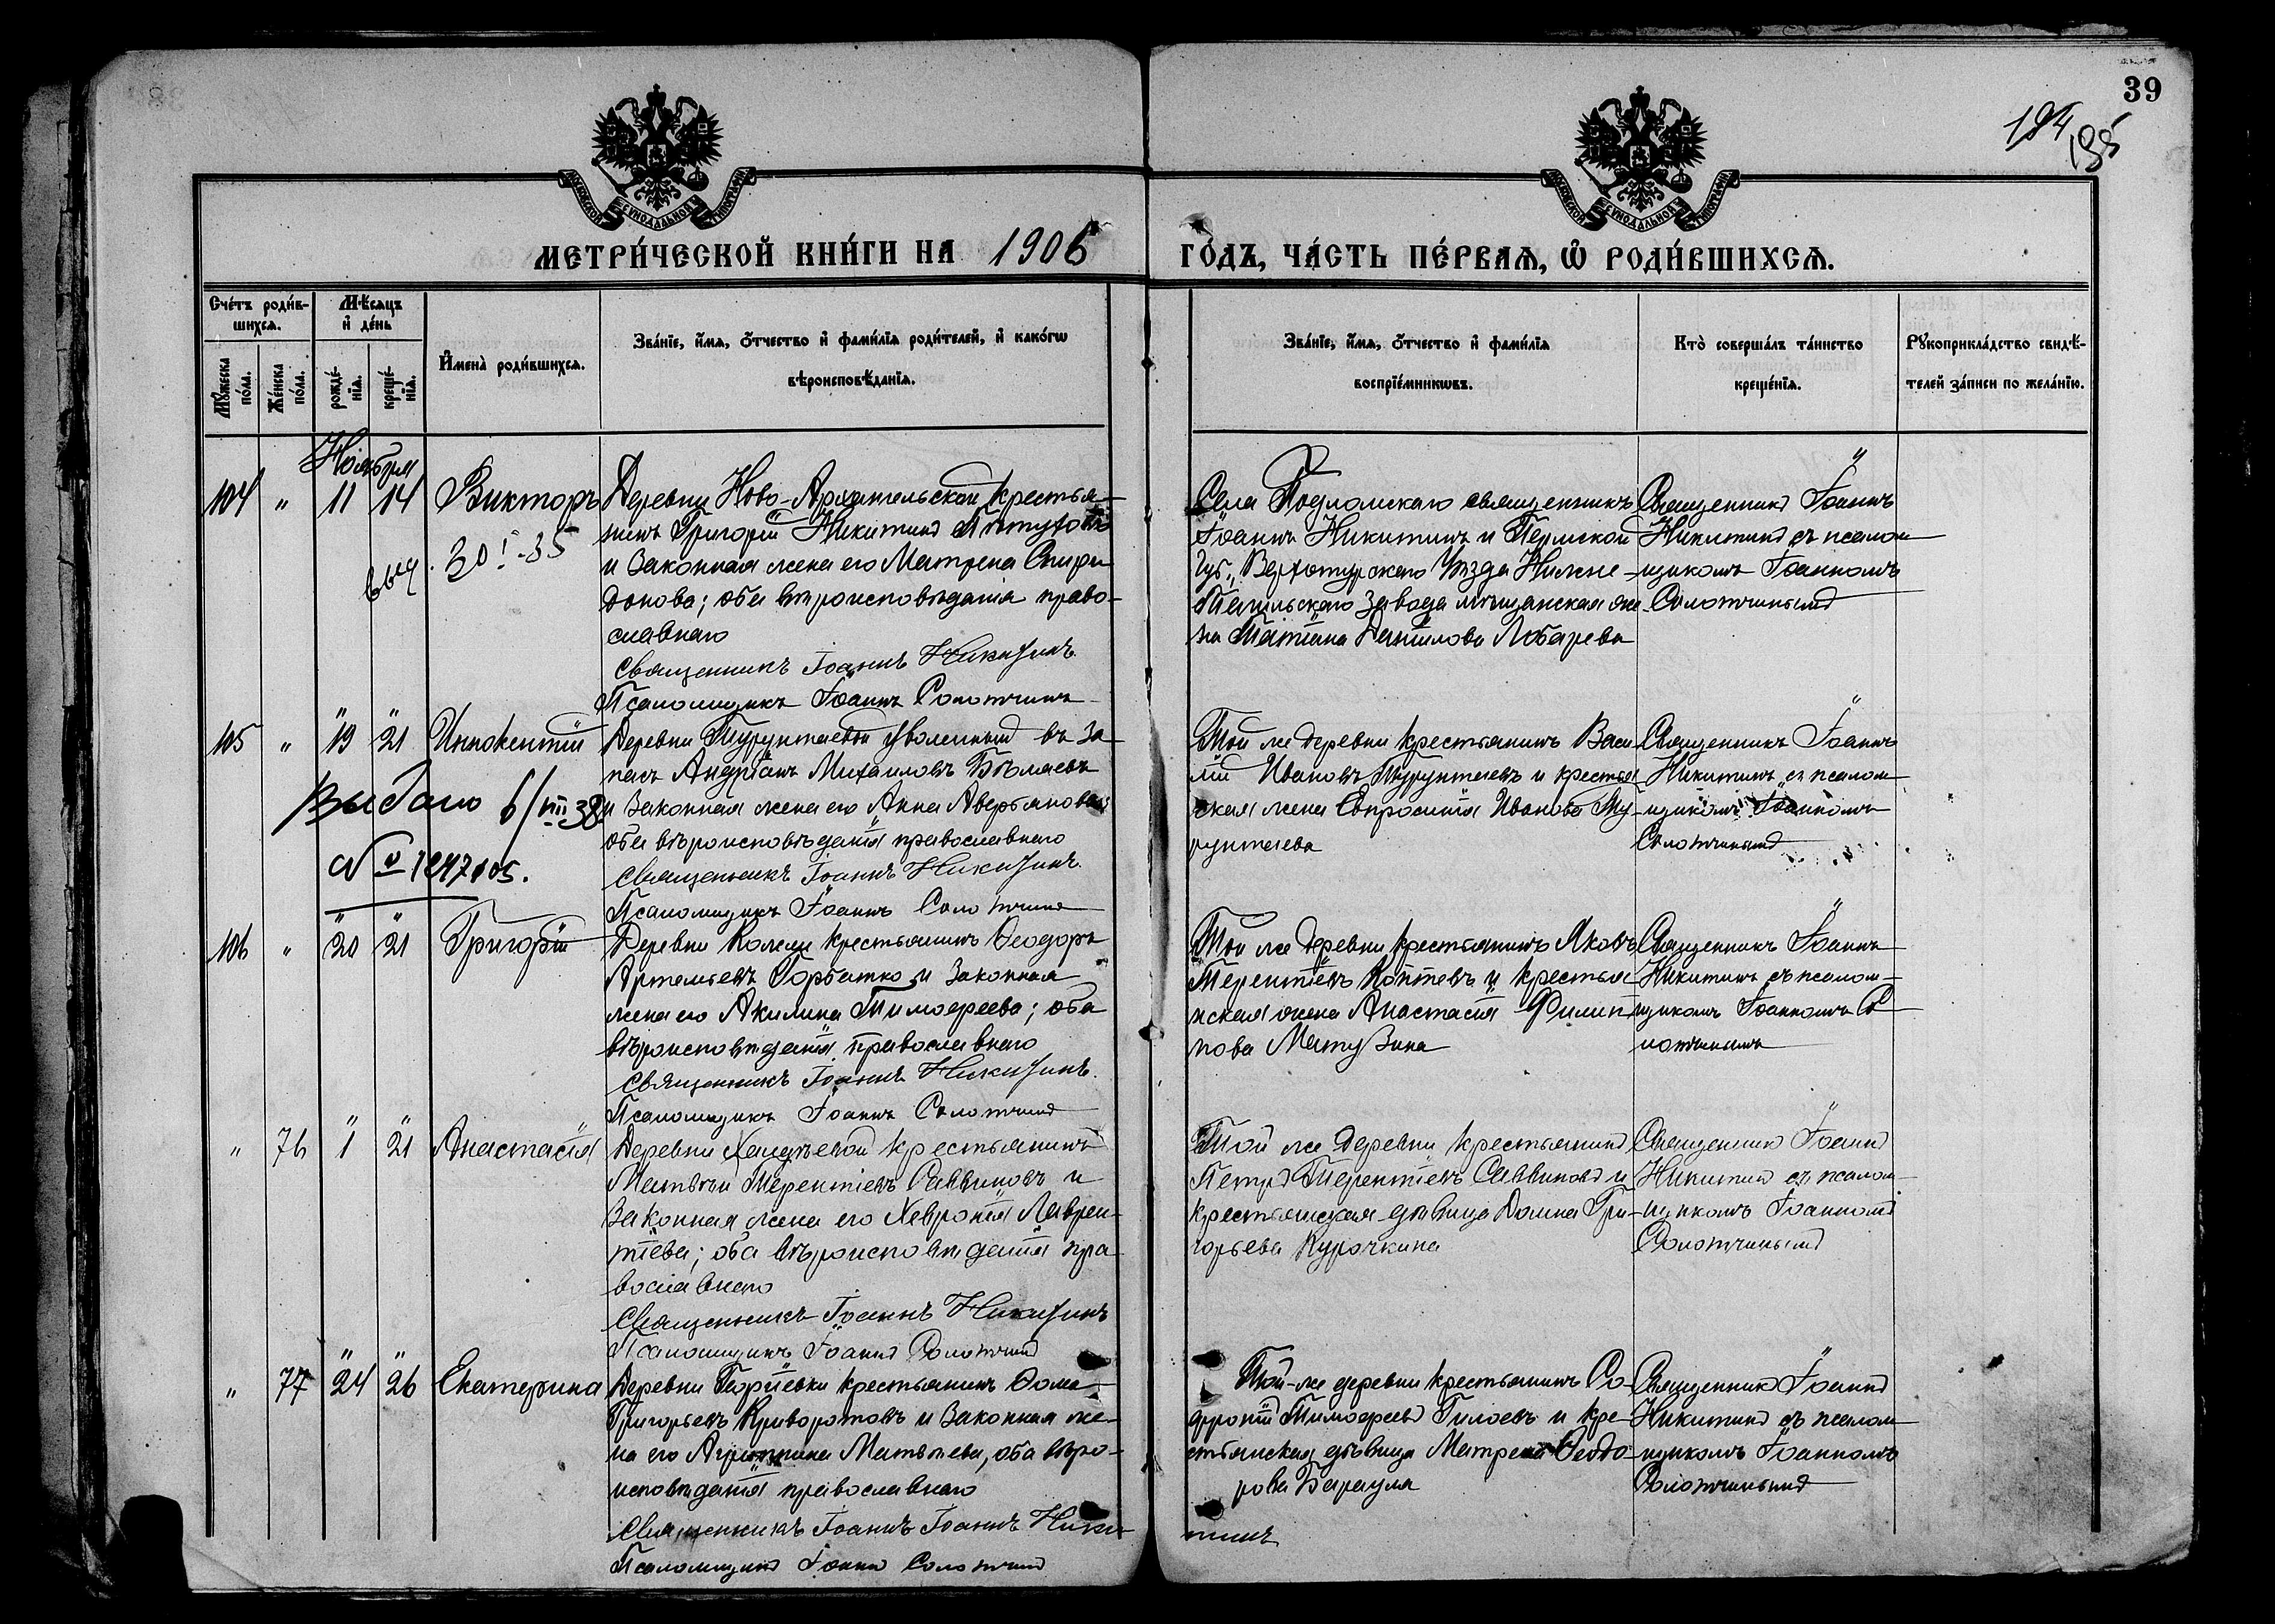 39
194
195
МОСКОВСКОЙ СѴНОДАЛЬНОЙ ТИПОГРАФІИ
МОСКОВСКОЙ СѴНОДАЛЬНОЙ ТИПОГРАФІИ
МЕТРИ́ЧЕСКОЙ КНИ́ГИ НА 1906
ГО́ДЪ, ЧА́СТЬ ПЕ́РВАЯ, Ѿ РОДИ́ВШИХСЯ.
Сче́тъ роди́в-
шихся.
Мѣ́сяцъ
и де́нь
Мꙋ́жеска
по́ла.
Же́нска
по́ла.
рожде́-
нїя.
креще́-
нїя.
Имена̀ роди́вшихся.
Зва́нїе, и́мя, о́тчество и фами́лїя роди́телей, и како́гѡ
вѣроисповѣ́данїя.
Зва́нїе, и́мя, о́тчество и фами́лїя
воспрїе́мникѡвъ.
Кто̀ соверша́лъ та́инство
креще́нїя.
Рꙋкоприкла́дство свидѣ́-
телей за́писи по жела́нїю.
Ноября
104 " 11 14 Викторъ
выд. 30 I-35
Деревни Ново-Архангельской крестья-
нинъ Григорій Никитинъ Пѣтуховъ
и законная жена его Матрена Спири-
донова; оба вѣроисповѣданія право-
славнаго
Священникъ Іоаннъ Никитинъ.
Псаломщикъ Іоаннъ Солотчинъ
Села Подломскаго священникъ
Іоаннъ Никитинъ и Пермской
Губ., Верхотурскаго Уѣзда Нижне-
Тагильскаго завода мѣщанская же-
на Татіана Данилова Лобарева
Священникъ Іоаннъ
Никитинъ съ псалом-
щикомъ Іоанномъ
Солотчинымъ
105 " 19 21 Иннокентій
Выдано 6/VIII 38
№ 1247105.
Деревни Турунтаевой уволенный въ за-
пасъ Андріанъ Михаиловъ Бѣляевъ
и законная жена его Анна Аверьянова;
оба вѣроисповѣданія православнаго
Священникъ Іоаннъ Никитинъ.
Псаломщикъ Іоаннъ Солотчинъ
Той же деревни крестьянинъ Васи-
лій Ивановъ Турунтаевъ и крестьян-
ская жена Евфросинія Иванова Ту-
рунтаева
Священникъ Іоаннъ
Никитинъ съ псалом-
щикомъ Іоанномъ
Солотчинымъ
106 " 20 21 Григорій
Деревни Колеи крестьянинъ Ѳеодоръ
Артемьевъ Горбатко и законная
жена его Акилина Тимофеева; оба
вѣроисповѣданія православнаго
Священникъ Іоаннъ Никитинъ.
Псаломщикъ Іоаннъ Солотчинъ
Той же деревни крестьянинъ Яковъ
Терентіевъ Коптевъ и крестья-
нская жена Анастасія Филип-
пова Матузина
Священникъ Іоаннъ
Никитинъ съ псалом-
щикомъ Іоанномъ Со-
лотчинымъ
" 76 1 21 Анастасія
Деревни крестьянинъ
Матвѣй Терентіевъ Саввиновъ и
законная жена его Хевронія Лаврен-
тіева; оба вѣроисповѣданія пра-
вославнаго
Священникъ Іоаннъ Никитинъ
Псаломщикъ Іоаннъ Солотчинъ
Той же деревни крестьянинъ
Петръ Терентіевъ Саввиновъ и
крестьянская дѣвица Домна Гри-
горьева Курочкина
Священникъ Іоаннъ
Никитинъ съ псалом-
щикомъ Іоанномъ
Солотчинымъ
" 77 24 26 Екатерина
Деревни Георгіевки крестьянинъ Ѳома
Григорьевъ Криворотовъ и законная же-
на его Агриппина Матвѣева, оба вѣро-
исповѣданія православнаго
Священникъ Іоаннъ Іоаннъ Ники-
тинъ
Псаломщикъ Іоаннъ Солотчинъ
Той-же деревни крестьянинъ Со-
фроній Тимофеевъ Гилоевъ и кре-
стьянская дѣвица Матрена Ѳеодо-
рова Бараула
Священникъ Іоаннъ
Никитинъ съ псалом-
щикомъ Іоанномъ
Солотчинымъ